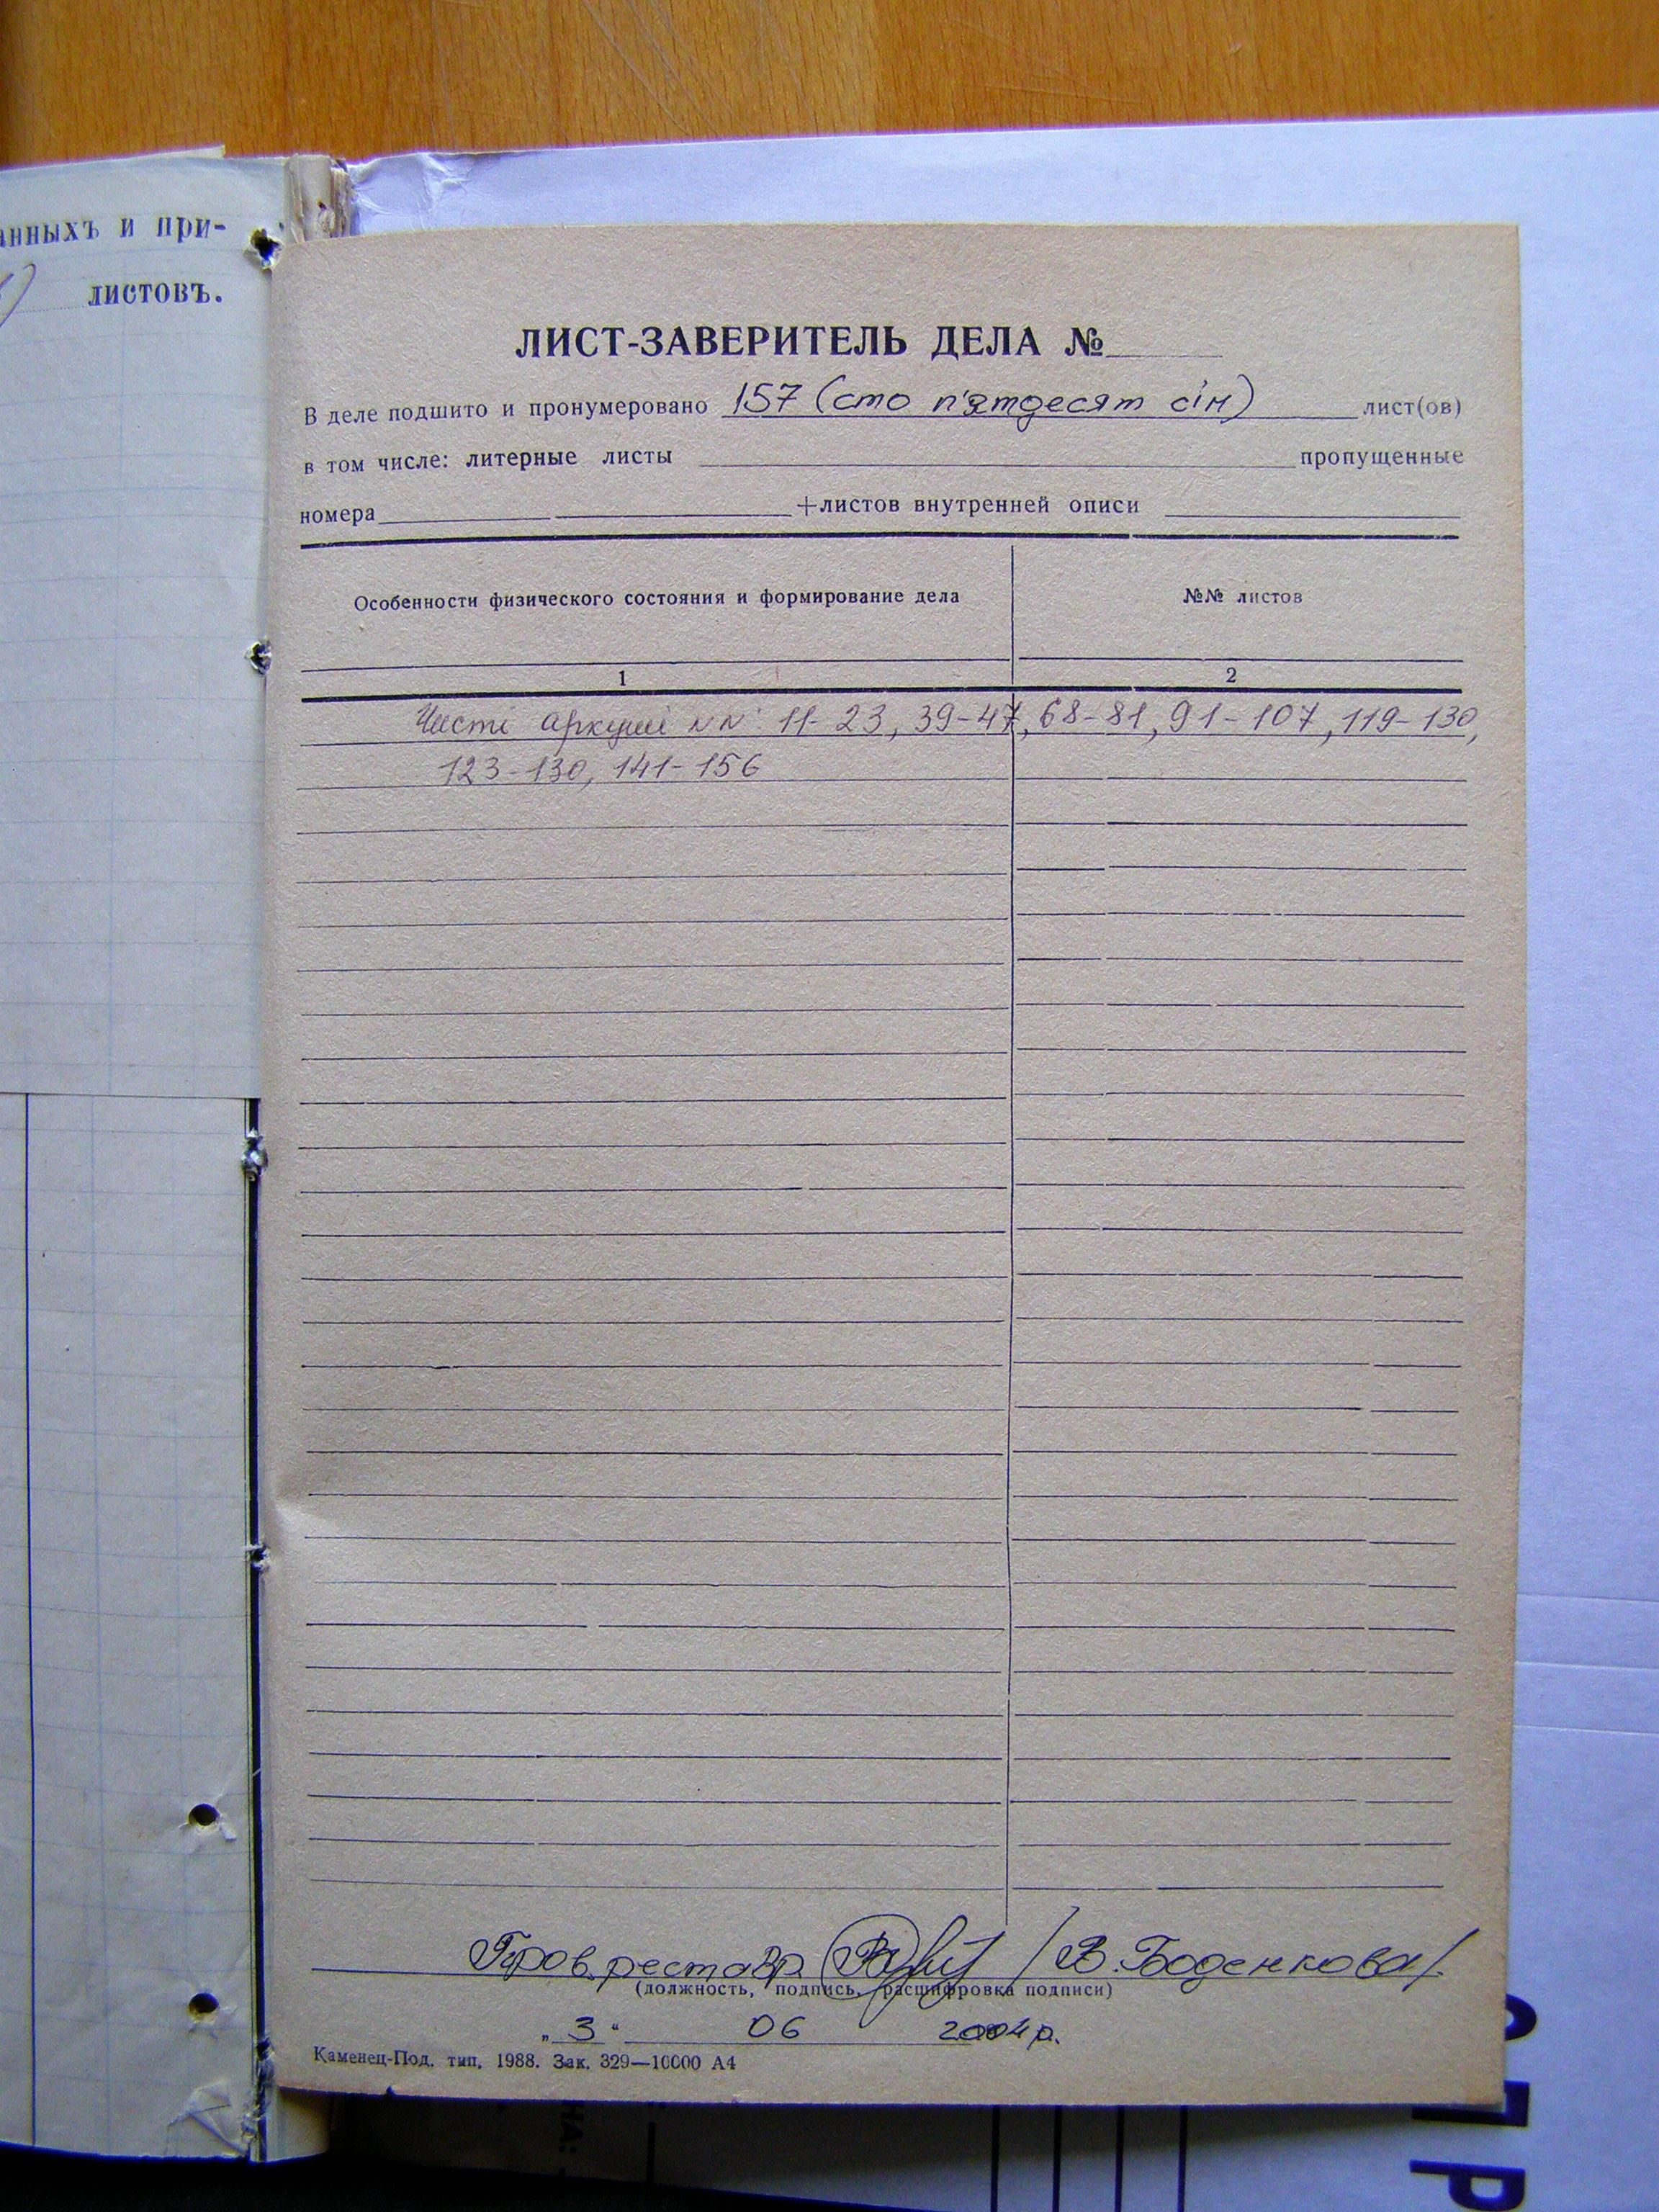 анныхъ и при-
листовъ.
ЛИСТ-ЗАВЕРИТЕЛЬ ДЕЛА №
В деле подшито и пронумеровано 157 (сто п'ятдесят сім) лист(ов)
в том числе: литерные листы пропущенные
номера +листов внутренней описи
Особенности физического состояния и формирование дела №№ листов
1 2
Чисті аркуші NN: 11-23, 39-47, 68-81, 91-107, 119-130,
123-130, 141-156
Пров. реставр. /В. Боденкова/.
(должность, подпись, расшифровка подписи)
„3“ 06 2004 р.
Каменец-Под. тип. 1988. Зак. 329—10000 А4